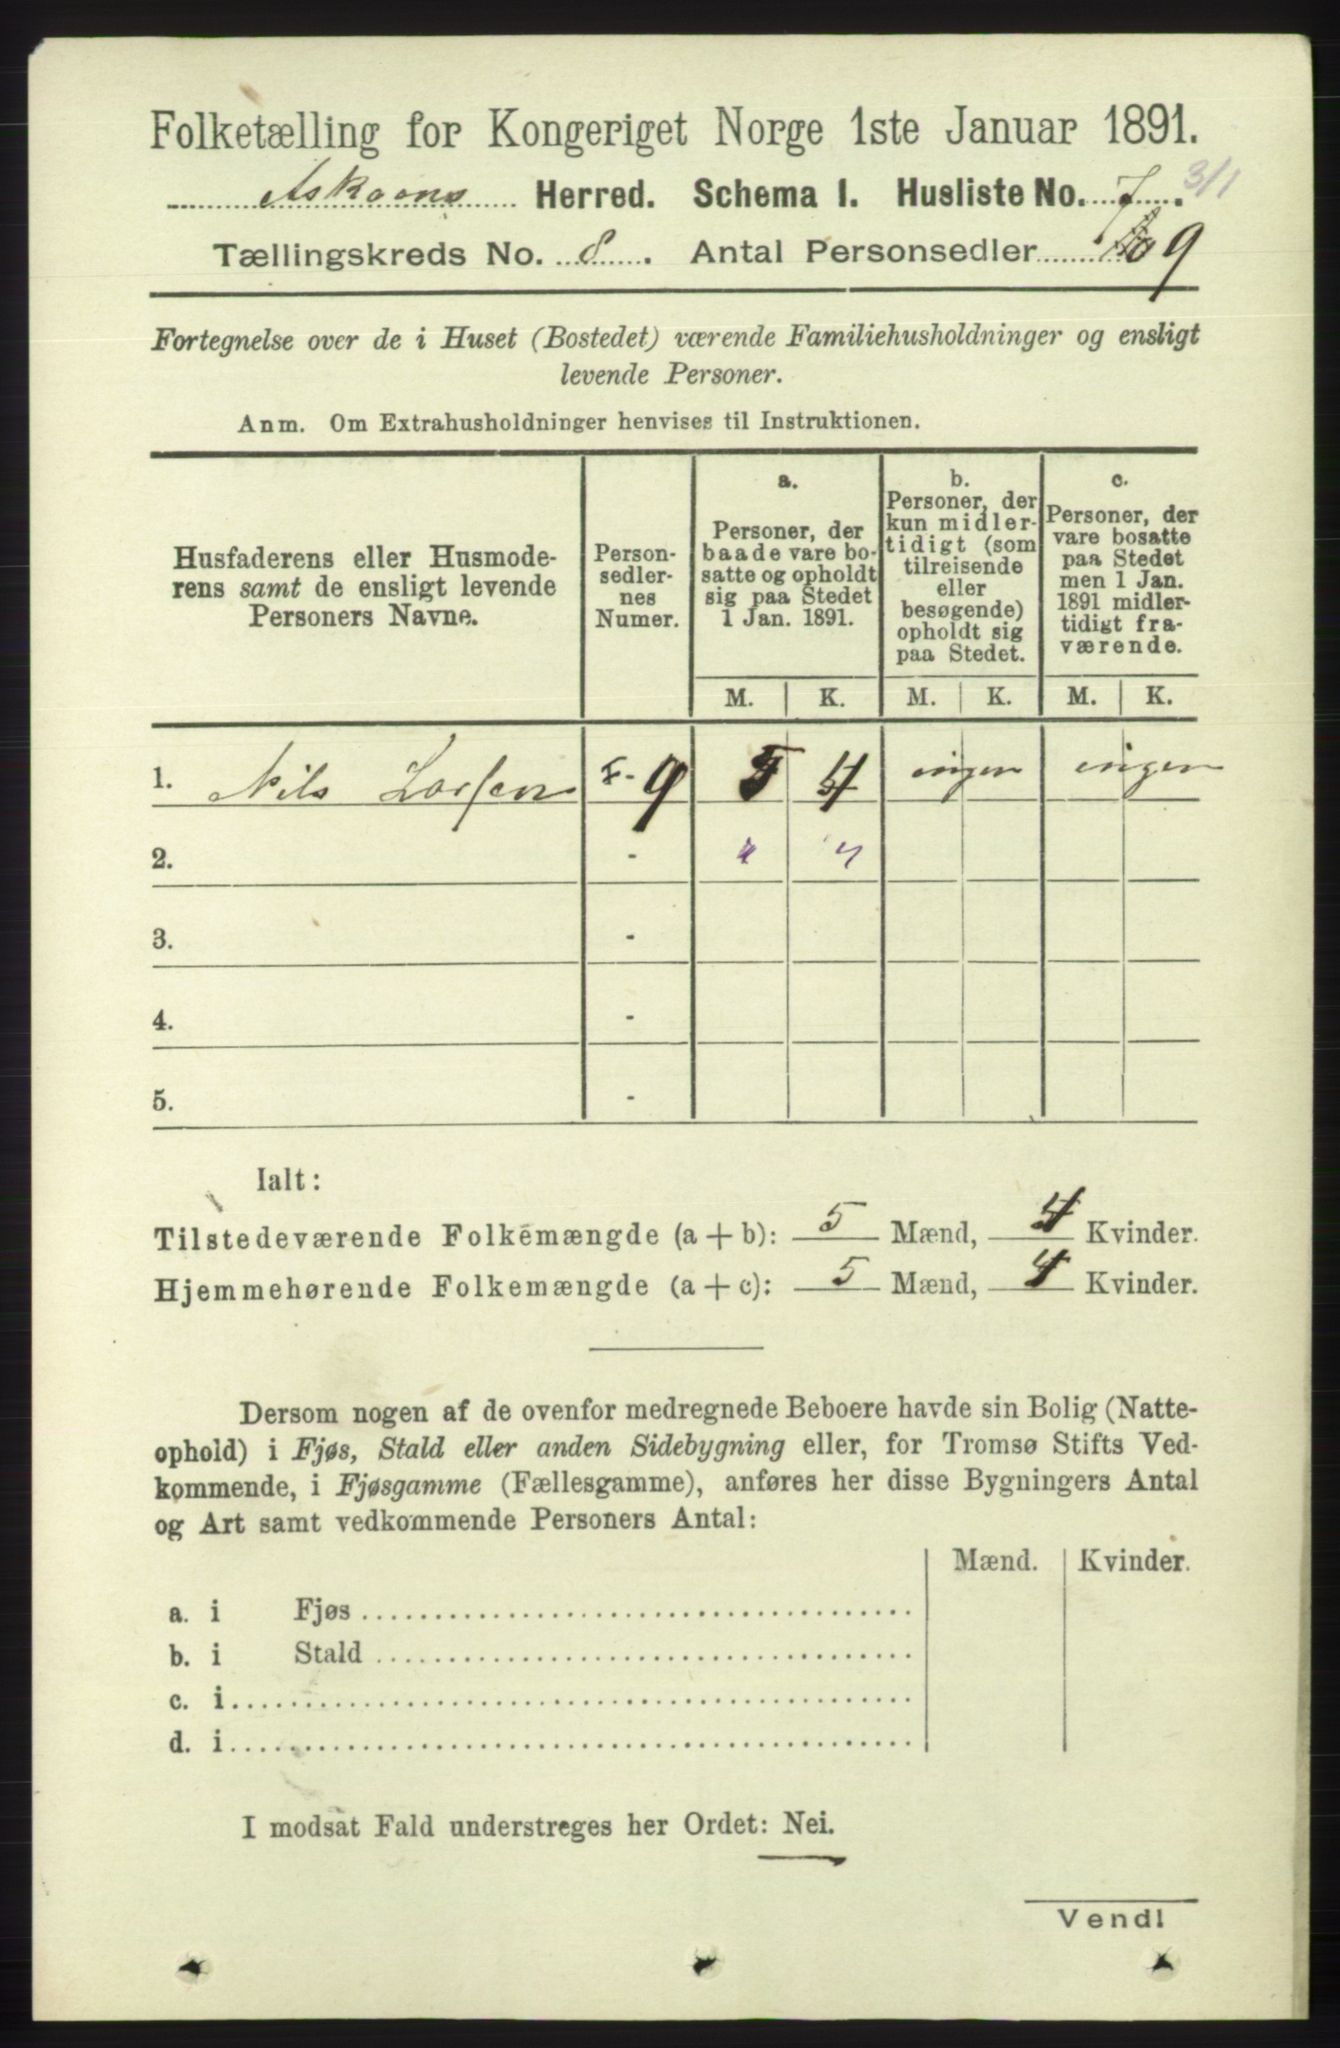 Folketælling for Kongeriget Norge 1ste Januar 1891.
Herred. Schema I. Husliste No. 7. 3/1
Tællingskreds No. 8. Antal Personsedler 9
Fortegnelse over de i Huset (Bostedet) værende Familiehusholdninger og ensligt
levende Personer.
Anm. Om Extrahusholdninger henvises til Instruktionen.
Husfaderens eller Husmode-
rens samt de ensligt levende
Personers Navne.
Person-
sedler-
nes
Numer.
a.
Personer, der
baade vare bo-
satte og opholdt
sig paa Stedet
1 Jan. 1891.
b.
Personer, der
kun midler-
tidigt (som
tilreisende
eller
besøgende)
opholdt sig
paa Stedet.
c.
Personer, der
vare bosatte
paa Stedet
men 1 Jan.
1891 midler-
tidigt fra-
værende.
M. K. M. K. M. K.
1. Nils Larsen - 9 5 4 ingen ingen
2. -
3. -
4. -
5. -
Ialt:
Tilstedeværende Folkemængde (a + b): 5 Mænd, 4 Kvinder.
Hjemmehørende Folkemængde (a + c): 5 Mænd, 4 Kvinder.
Dersom nogen af de ovenfor medregnede Beboere havde sin Bolig (Natte-
ophold) i Fjøs, Stald eller anden Sidebygning eller, for Tromsø Stifts Ved-
kommende, i Fjøsgamme (Fællesgamme), anføres her disse Bygningers Antal
og Art samt vedkommende Personers Antal:
Mænd. Kvinder.
a. i Fjøs
b. i Stald
c. i
d. i
I modsat Fald understreges her Ordet: Nei.
Vend!